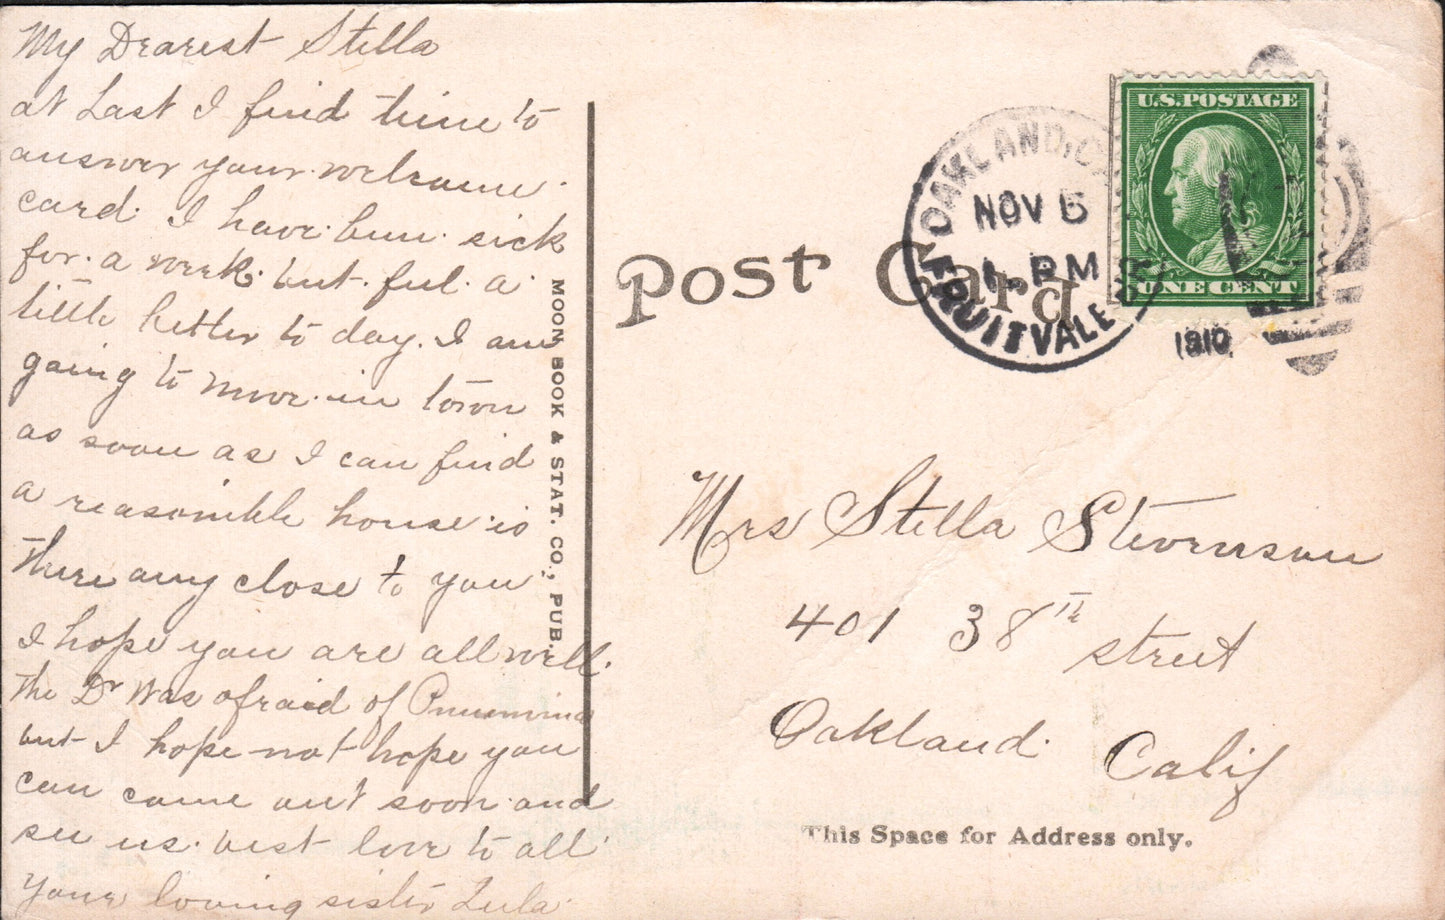 My Dearest Stella
at Last I find time to
answer your welcome
card. I have been sick
for a week but feel a
little better to day. I am
going to move in town
as soon as I can find
a reasonible house is
there any close to you
I hope you are all well.
The Dr was afraid of Pnumonia
but I hope not hope you
can come out soon and
see us. best love to all
your loving sister Lula
MOON BOOK & STAT. CO., PUB.
Post Card
OAKLAND, C
NOV 5
1 - PM
FRUITVALE
1910
U.S. POSTAGE
ONE CENT
Mrs Stella Stevenson
401 38th street
Oakland Calif
This Space for Address only.